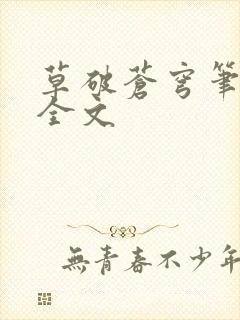 草破蒼穹筆
全文
無青春不少年